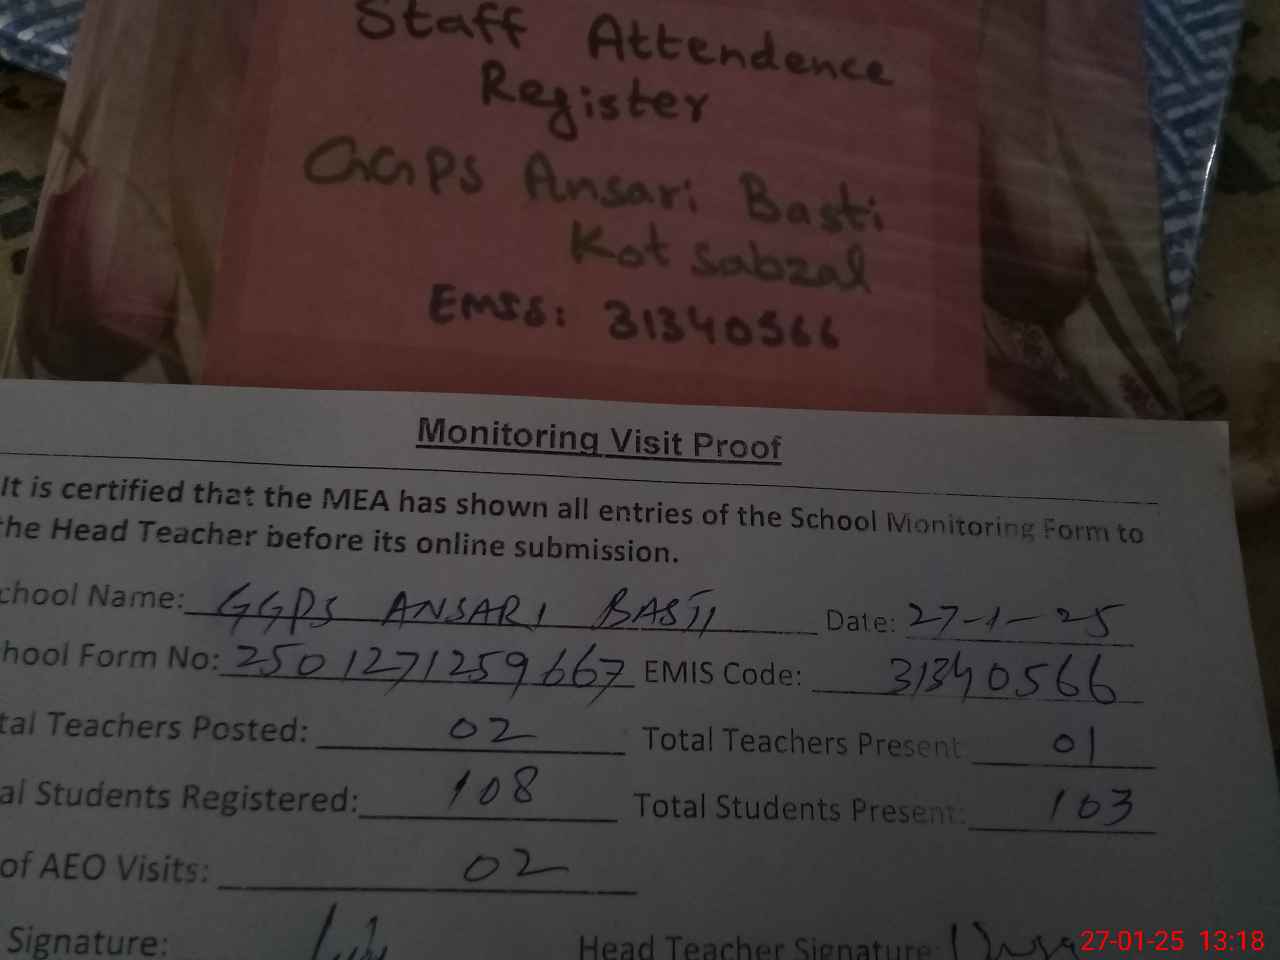 Staff Attendence
Register
GGPS Ansari Basti
Kot Sabzal
Emss: 31340566
Monitoring Visit Proof
It is certified that the MEA has shown all entries of the School Monitoring Form to
the Head Teacher before its online submission.
chool Name: GGPS ANSARI BASTI Date: 27-1-25
hool Form No: 2501271259667 EMIS Code: 31340566
tal Teachers Posted: 02 Total Teachers Present: 01
al Students Registered: 108 Total Students Present: 103
of AEO Visits: 02
Signature: Head Teacher Signature:
27-01-25 13:18